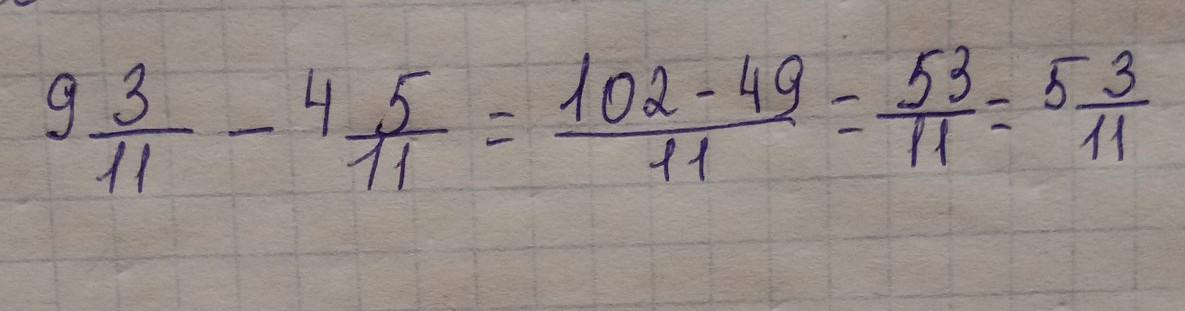 9 3/11 - 4 5/11 = (102 - 49)/11 = 53/11 = 5 3/11